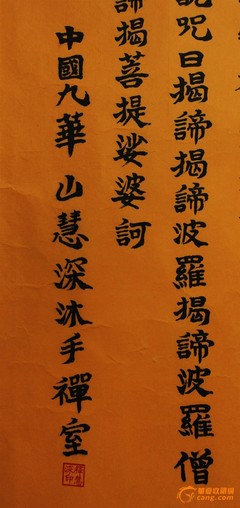 説咒曰揭諦揭諦波羅揭諦波羅僧
諦揭菩提娑婆訶
中國九華山慧深沐手禪室
華夏收藏網